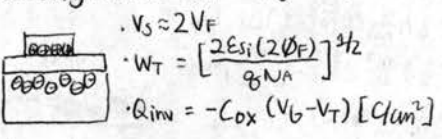 · Vs ≈ 2VF
· WT = [2εsi(2ØF) / qNA]^1/2
· Qinv = -Cox (VG-VT) [C/cm²]